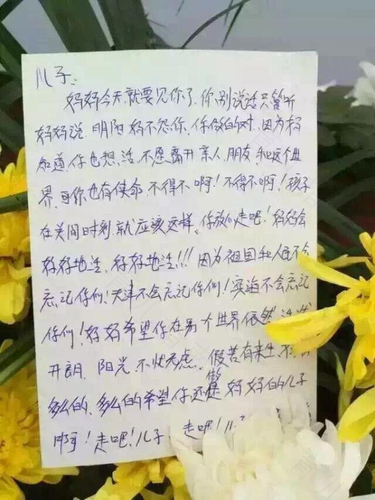 儿子：
妈妈今天就要见你了，你别说话只管听
妈妈说，明阳妈不怨你，你做的对，因为妈
知道你也想活，不愿离开亲人、朋友和这个世
界，可你也有使命，不得不啊！不得不啊！孩子
在关间时刻就应该这样，你放心走吧！妈妈会
好好地活，好好地活！！！因为祖国和人民不会
忘记你们！天津不会忘记你们！滨海不会忘记
你们！妈妈希望你在另个世界依然
开朗、阳光、不忧不虑，假若有来生，
多么的，多么的希望你还是做妈妈的儿子
啊！走吧！儿子，走吧！儿子